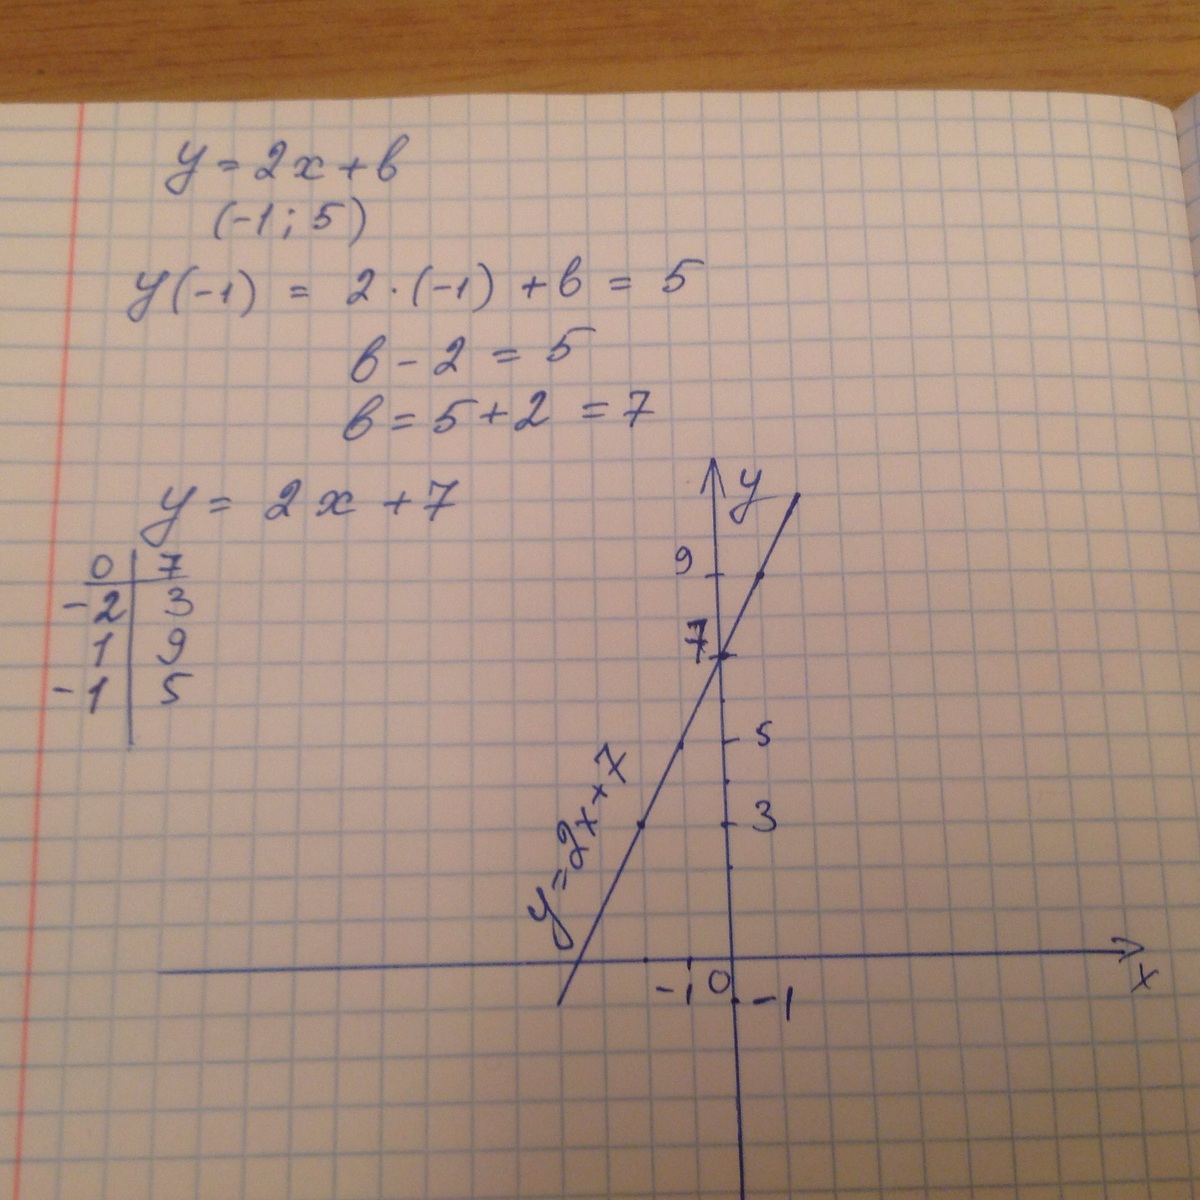 y = 2x + b
(-1; 5)
y(-1) = 2·(-1) + b = 5
b - 2 = 5
b = 5 + 2 = 7
y = 2x + 7
0 | 7
-2 | 3
1 | 9
-1 | 5
y
9
7
5
3
y = 2x + 7
-1 0
-1
x